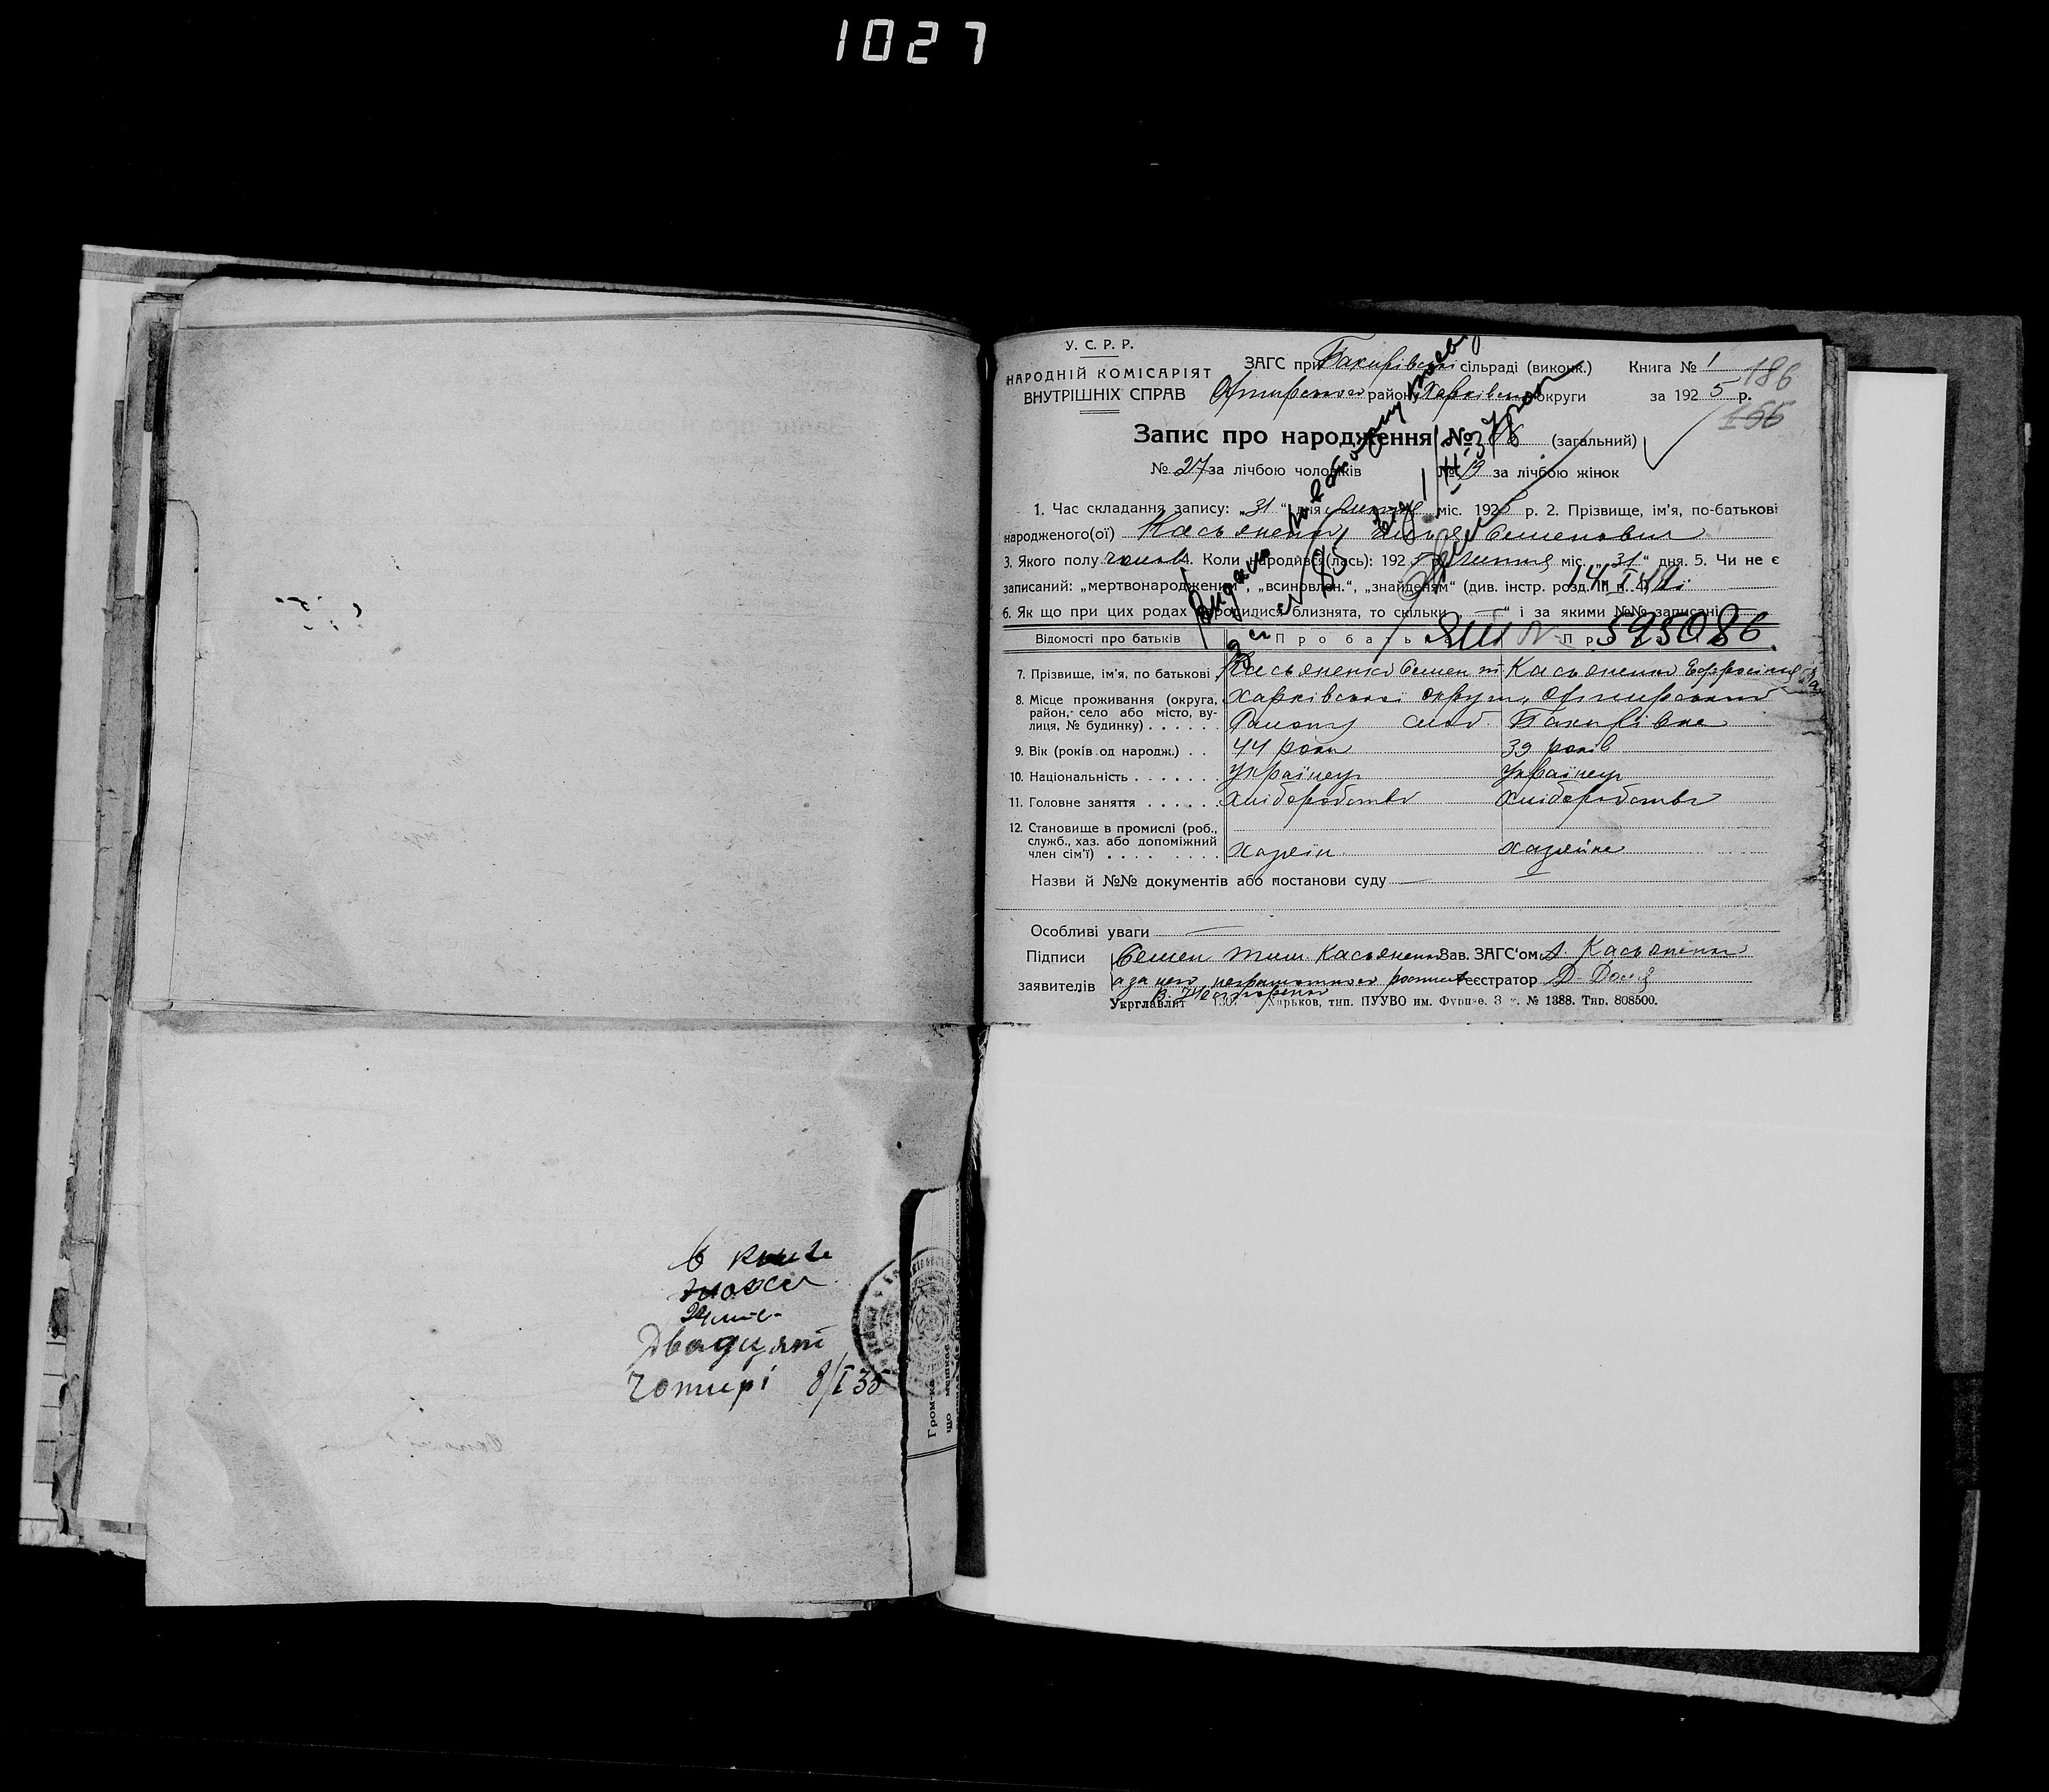 1027
У. С. Р. Р.
НАРОДНІЙ КОМІСАРІЯТ
ВНУТРІШНІХ СПРАВ
ЗАГС при Бакирівській сільраді (виконк.) Книга № 1
району Харківської округи за 1925 р.
186
166
Запис про народження № (загальний)
№ 27 за лічбою чоловіків № 19 за лічбою жінок
1. Час складання запису: „31“ дня липня міс. 1925 р. 2. Прізвище, ім'я, по-батькові
народженого(ої) Касьяненко Семенович
3. Якого полу чолов. 4. Коли народився(лась): 1925 р. липня міс. „31“ дня. 5. Чи не є
записаний: „мертвонароджений“, „всиновлен.“, „знайденям“ (див. інстр. розд. III п. 4)
6. Як що при цих родах народилися близнята, то скільки „—“ і за якими №№ записані
Відомості про батьків Про батька
595086
7. Прізвище, ім'я, по батькові Касьяненко Семен Т. Касьяненко Ефросинія
8. Місце проживання (округа, район, село або місто, вулиця, № будинку) Харківської округи, Охтирського
Району слоб. Бакирівка
9. Вік (років од народж.) 44 роки 39 років
10. Національність Українец Українец
11. Головне заняття Хліборобство Хліборобство
12. Становище в промислі (роб.,
служб., хаз. або допоміжний
член сім'ї) Хазяїн хазяйка
Назви й №№ документів або постанови суду —
Особливі уваги —
Підписи Семен Тим. Касьяненко Зав. ЗАГС'ом А. Касьяненко
заявителів а за него неграмотного Реєстратор Д.
Укрглавліт Харьков, тип. ПУУВО им. Фрунзе. З к. № 1388. Тир. 808500.
Двадцят
Чотирі 8/I 35
Гром-ка
що мешкає